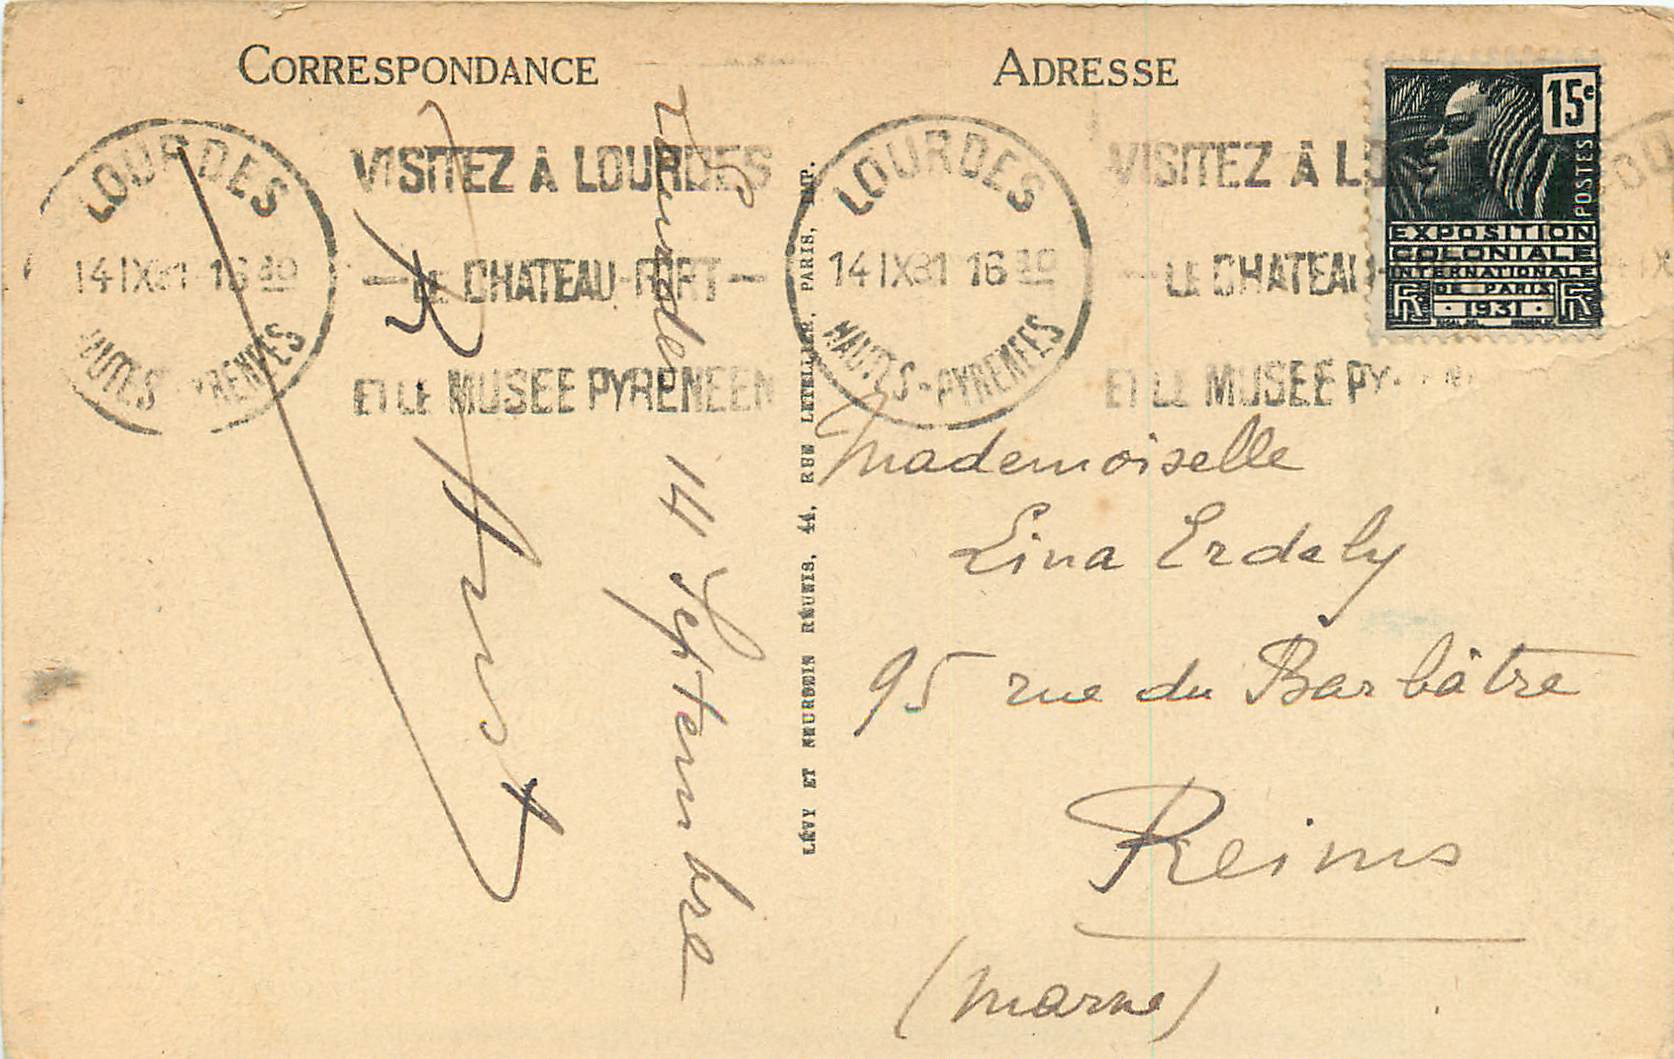 CORRESPONDANCE
ADRESSE
LOURDES
14 IX 31 16 30
HAUTES-PYRENEES
VISITEZ À LOURDES
— LE CHATEAU-FORT —
ET LE MUSEE PYRENEEN
LOURDES
14 IX 31 16 30
HAUTES-PYRENEES
VISITEZ À LO
— LE CHATEAU-
ET LE MUSEE PY
15c
POSTES
EXPOSITION
COLONIALE
INTERNATIONALE
DE PARIS
RF · 1931 · RF
14 Septembre
LÉVY ET NEURDEIN RÉUNIS, 44, RUE LETELLIER, PARIS, IMP.
Mademoiselle
Lina Erdely
95 rue du Barbâtre
Reims
(Marne)